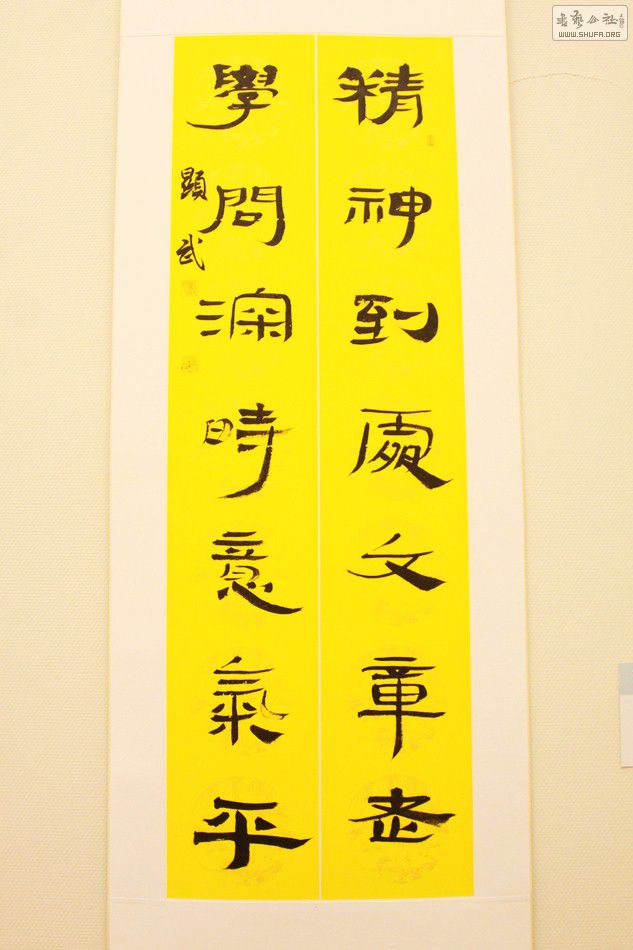 精神到處文章老
學問深時意氣平
顯武
書藝公社
WWW.SHUFA.ORG